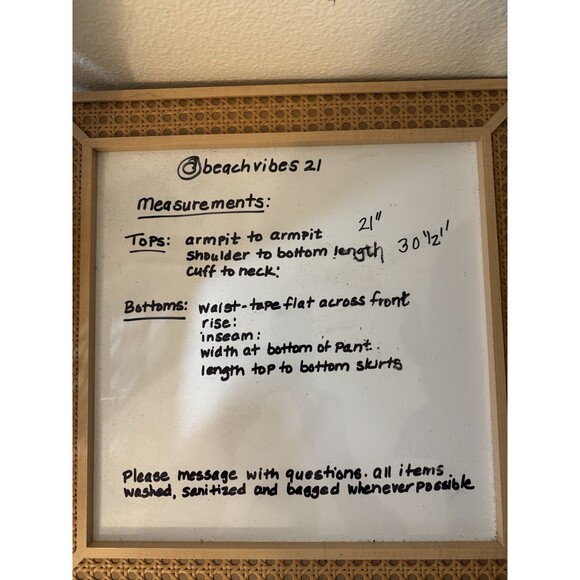 @beachvibes 21
Measurements:
Tops: armpit to armpit 21"
shoulder to bottom length 30 1/2"
cuff to neck:
Bottoms: waist-tape flat across front
rise:
inseam:
width at bottom of pant.
length top to bottom skirts
Please message with questions. all items
washed, sanitized and bagged whenever possible